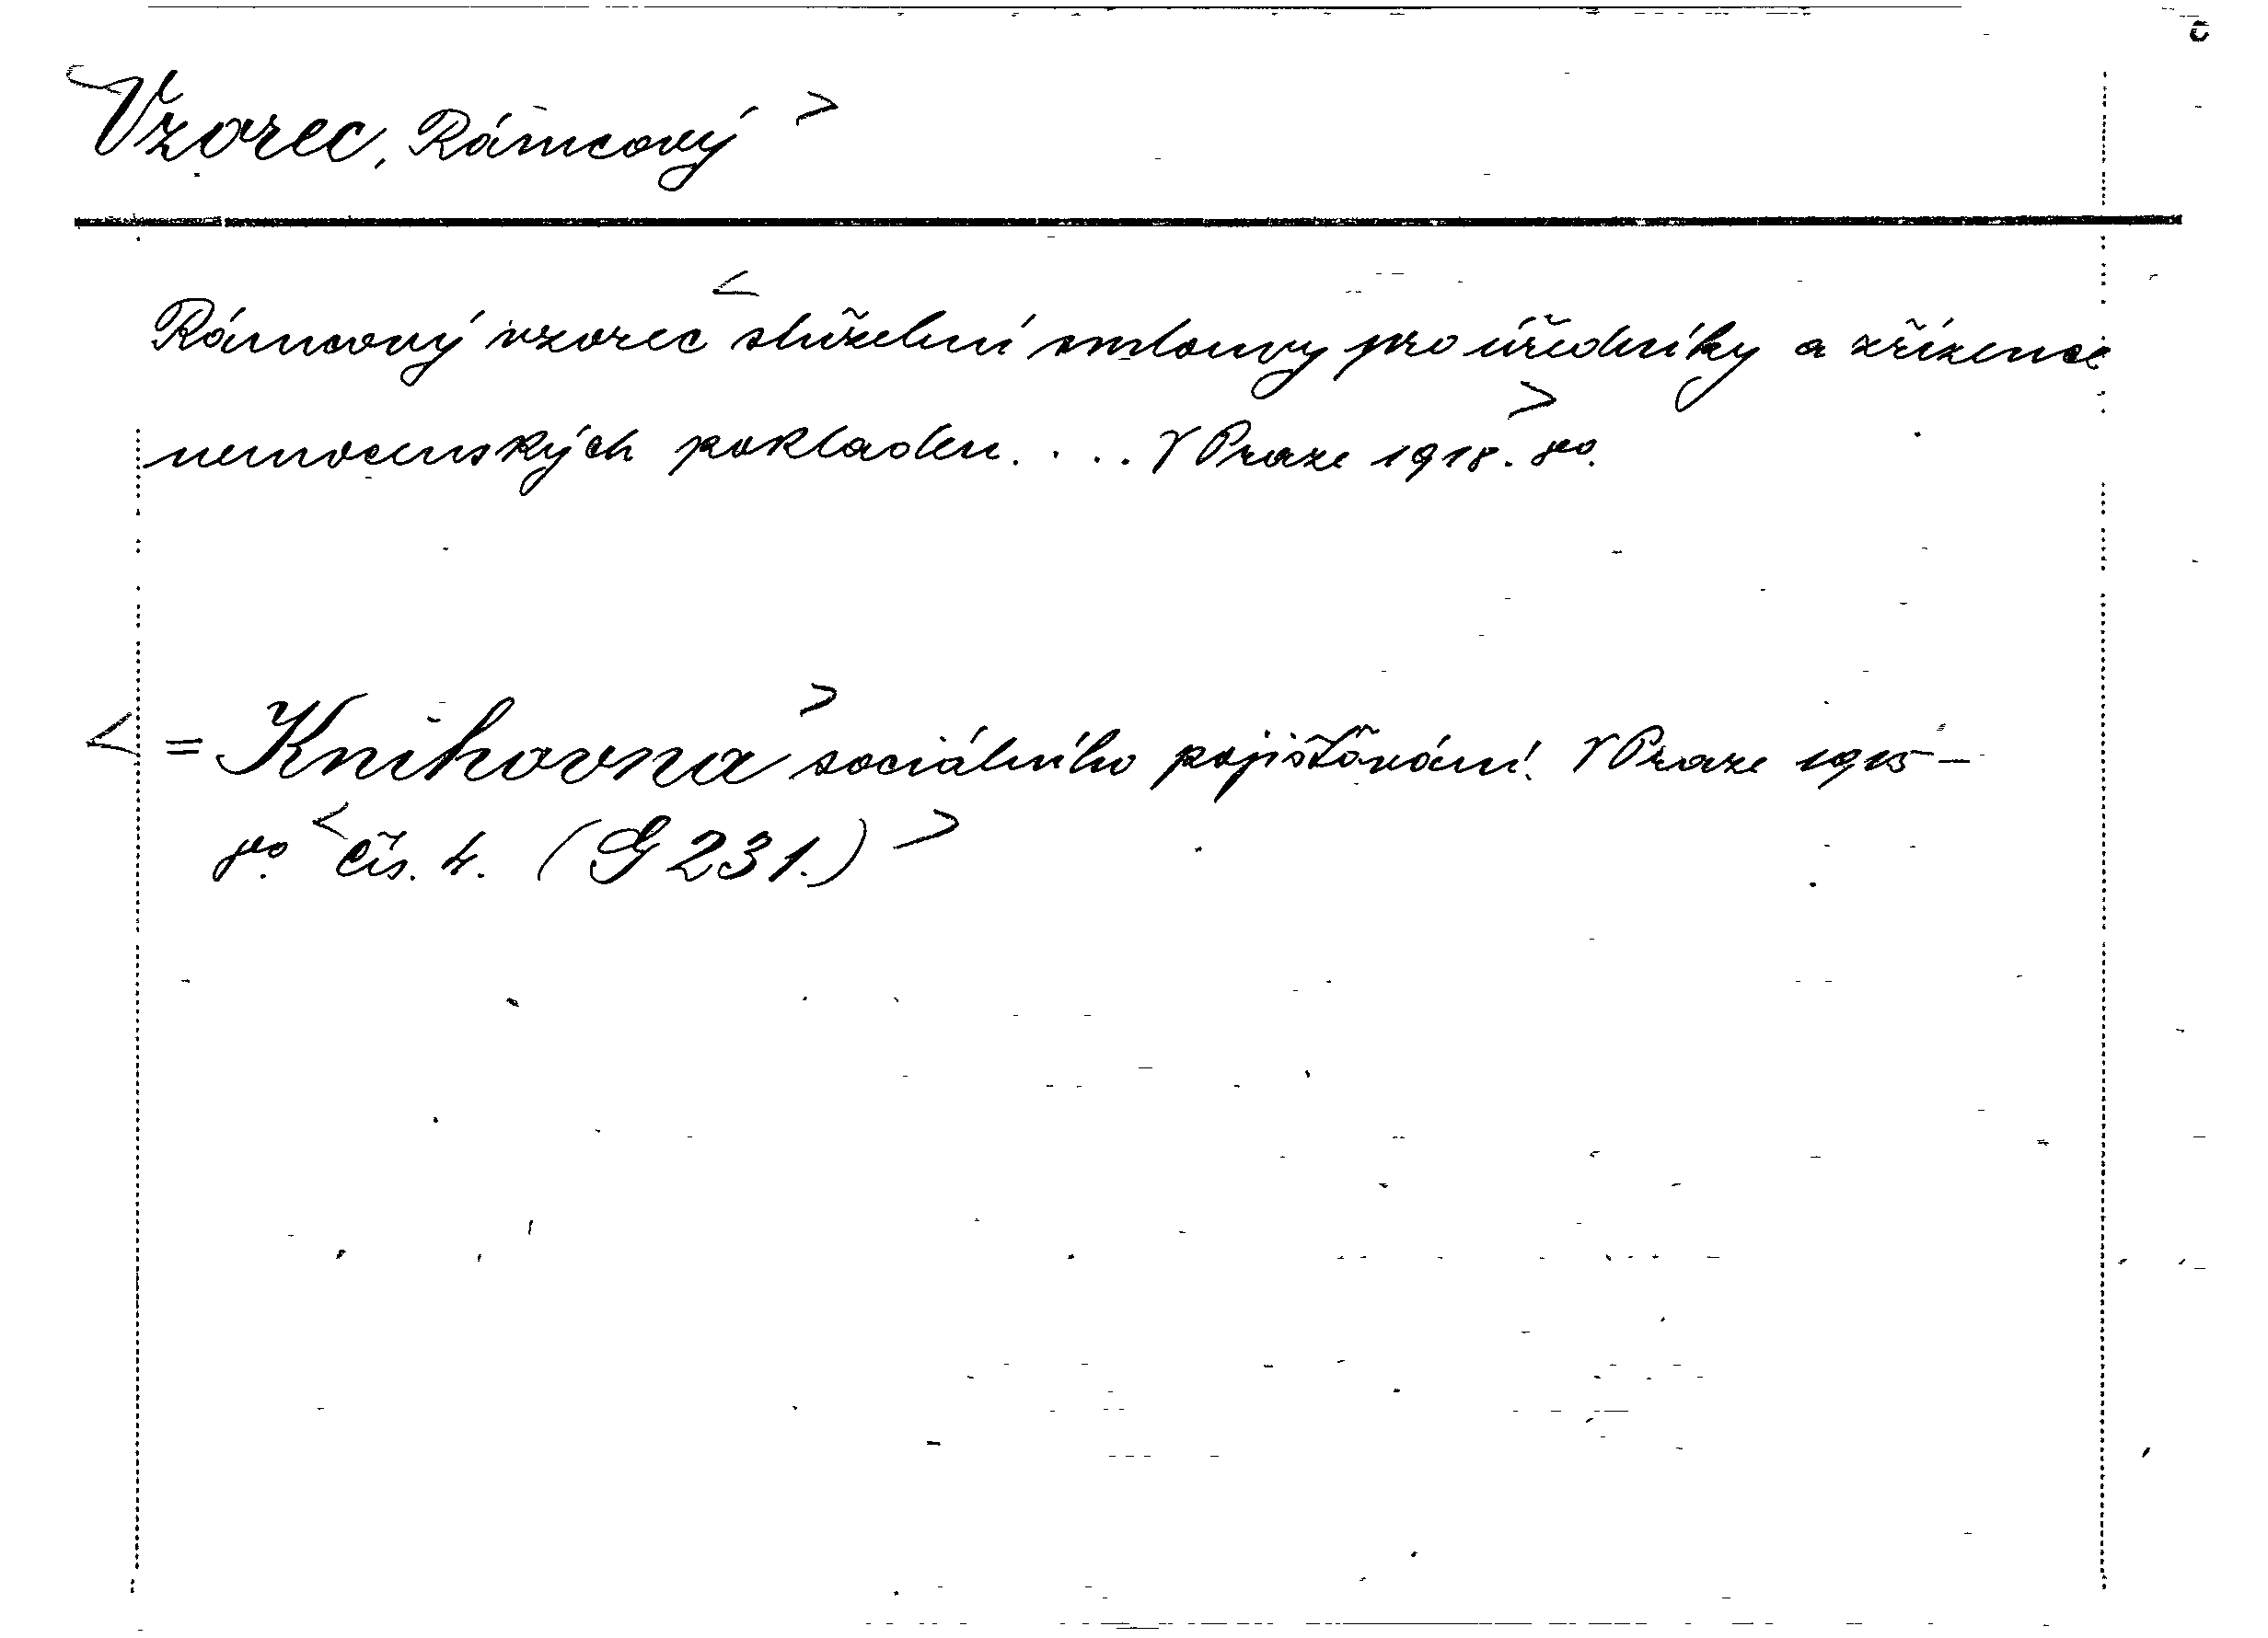 Vzorec, Rámcový >
<
Rámcový vzorec služební smlouvy pro úředníky a zřízence
nemocenských pokladen. ... V Praze 1918. 8o. >
< = Knihovna > sociálního pojišťování. V Praze 1915 -
8o. < čís. 4. (G 231.) >